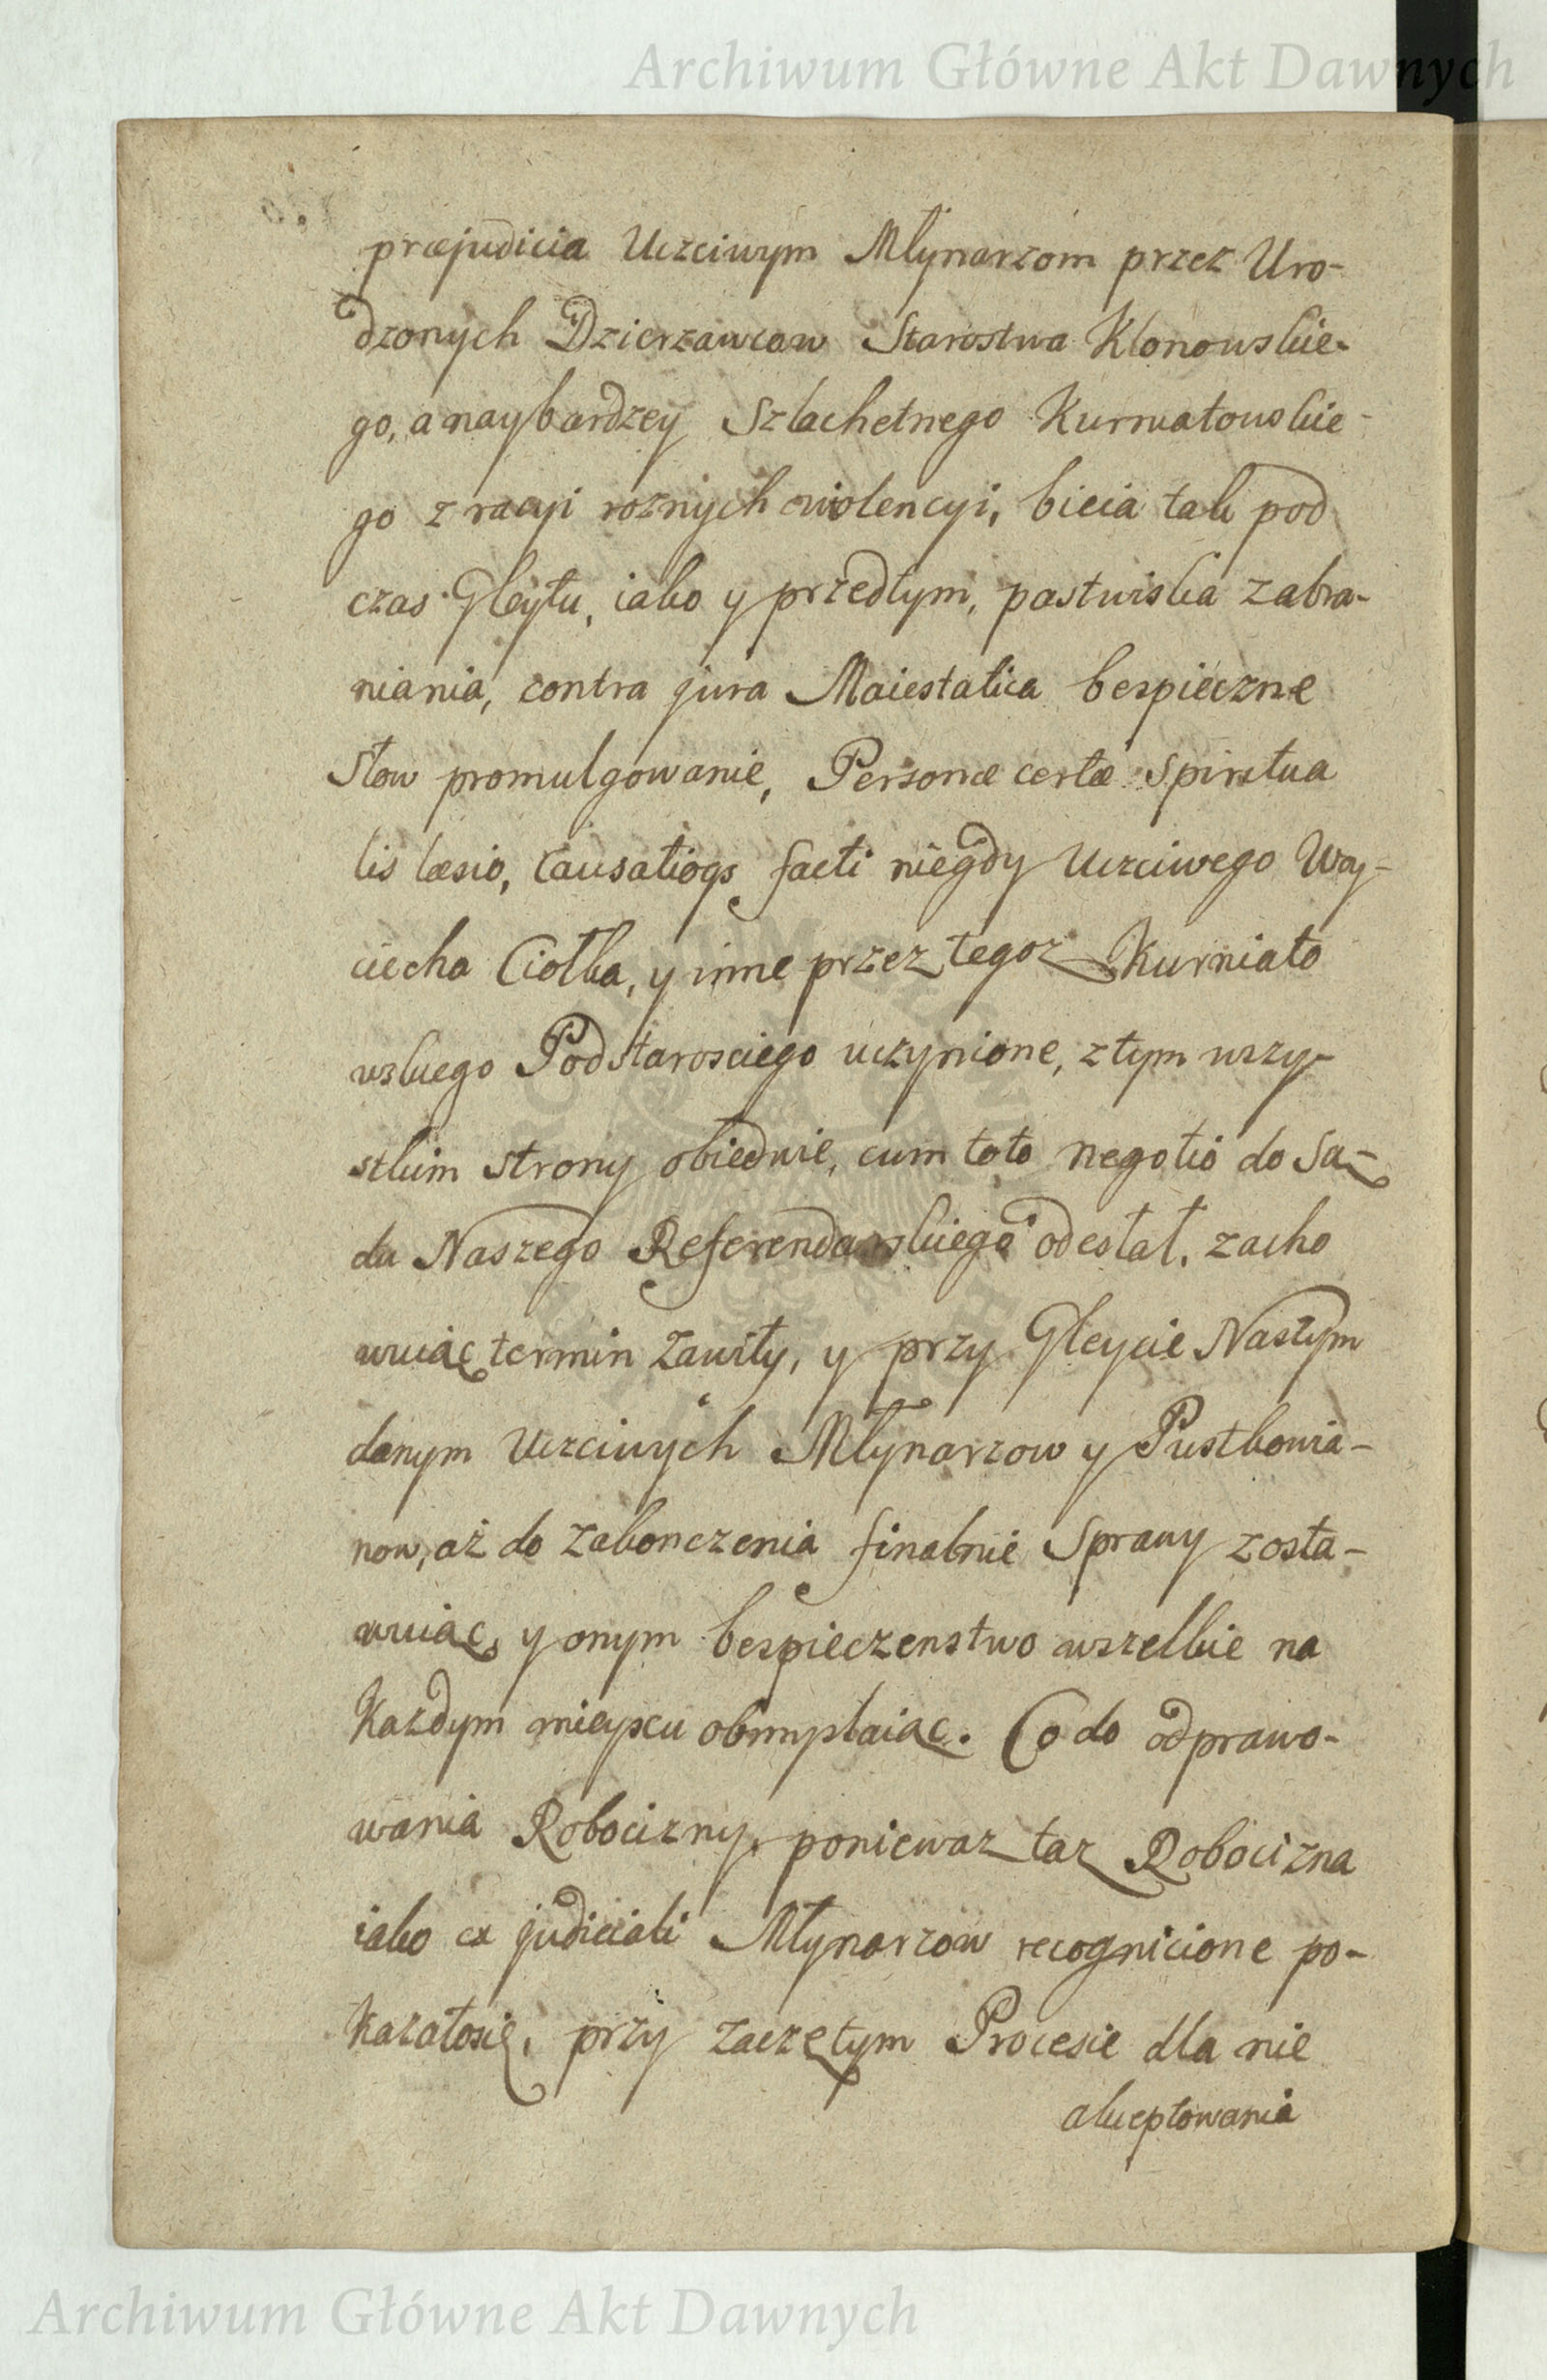 Archiwum Główne Akt Dawnych
præjudicia Uczciwym Młynarzom przez Uro-
dzonych Dzierzawcow Starostwa Klonowskie-
go, a naybardzey Szlachetnego Kurnatowskie-
go z racyi roznych violencyi, bicia tak pod
czas Gleytu, iako y przedtym, pastwiska zabra-
niania, contra jura Maiestatica bespieczne
Słow promulgowanie, Personæ certæ Spiritua
lis læsio, causatioqs facti niegdy Uczciwego Woy-
ciecha Ciołka, y inne przez tegoz Kurniato
wskiego Podstarosciego uczynione, z tym wszy-
stkim strony obiedwie, cum toto negotio do Są-
du Naszego Referendarskiego odesłał, zacho
wuiąc termin zawity, y przy Gleycie Naszym
danym Uczciwych Młynarzow y Pustkowia-
now, aż do zakonczenia finalnie Sprawy zosta-
wuiąc, y onym bespieczenstwo wszelkie na
Kazdym mieyscu obmyslaiąc. Co do odprawo-
wania Robocizny, poniewaz taz Robocizna
iako ex judiciali Młynarzow recognicione po-
kazałosię, przy zaczętym Procesie dla nie
akceptowania
Archiwum Główne Akt Dawnych